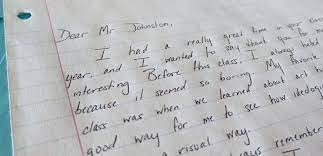 Dear Mr Johnston,
I had a really great time in your
year, and I wanted to say thank you for
interesting. Before this class, I always hated
because it seemed so boring. My favorite
class was when we learned about art
good way for me to see how
a visual way.
remember